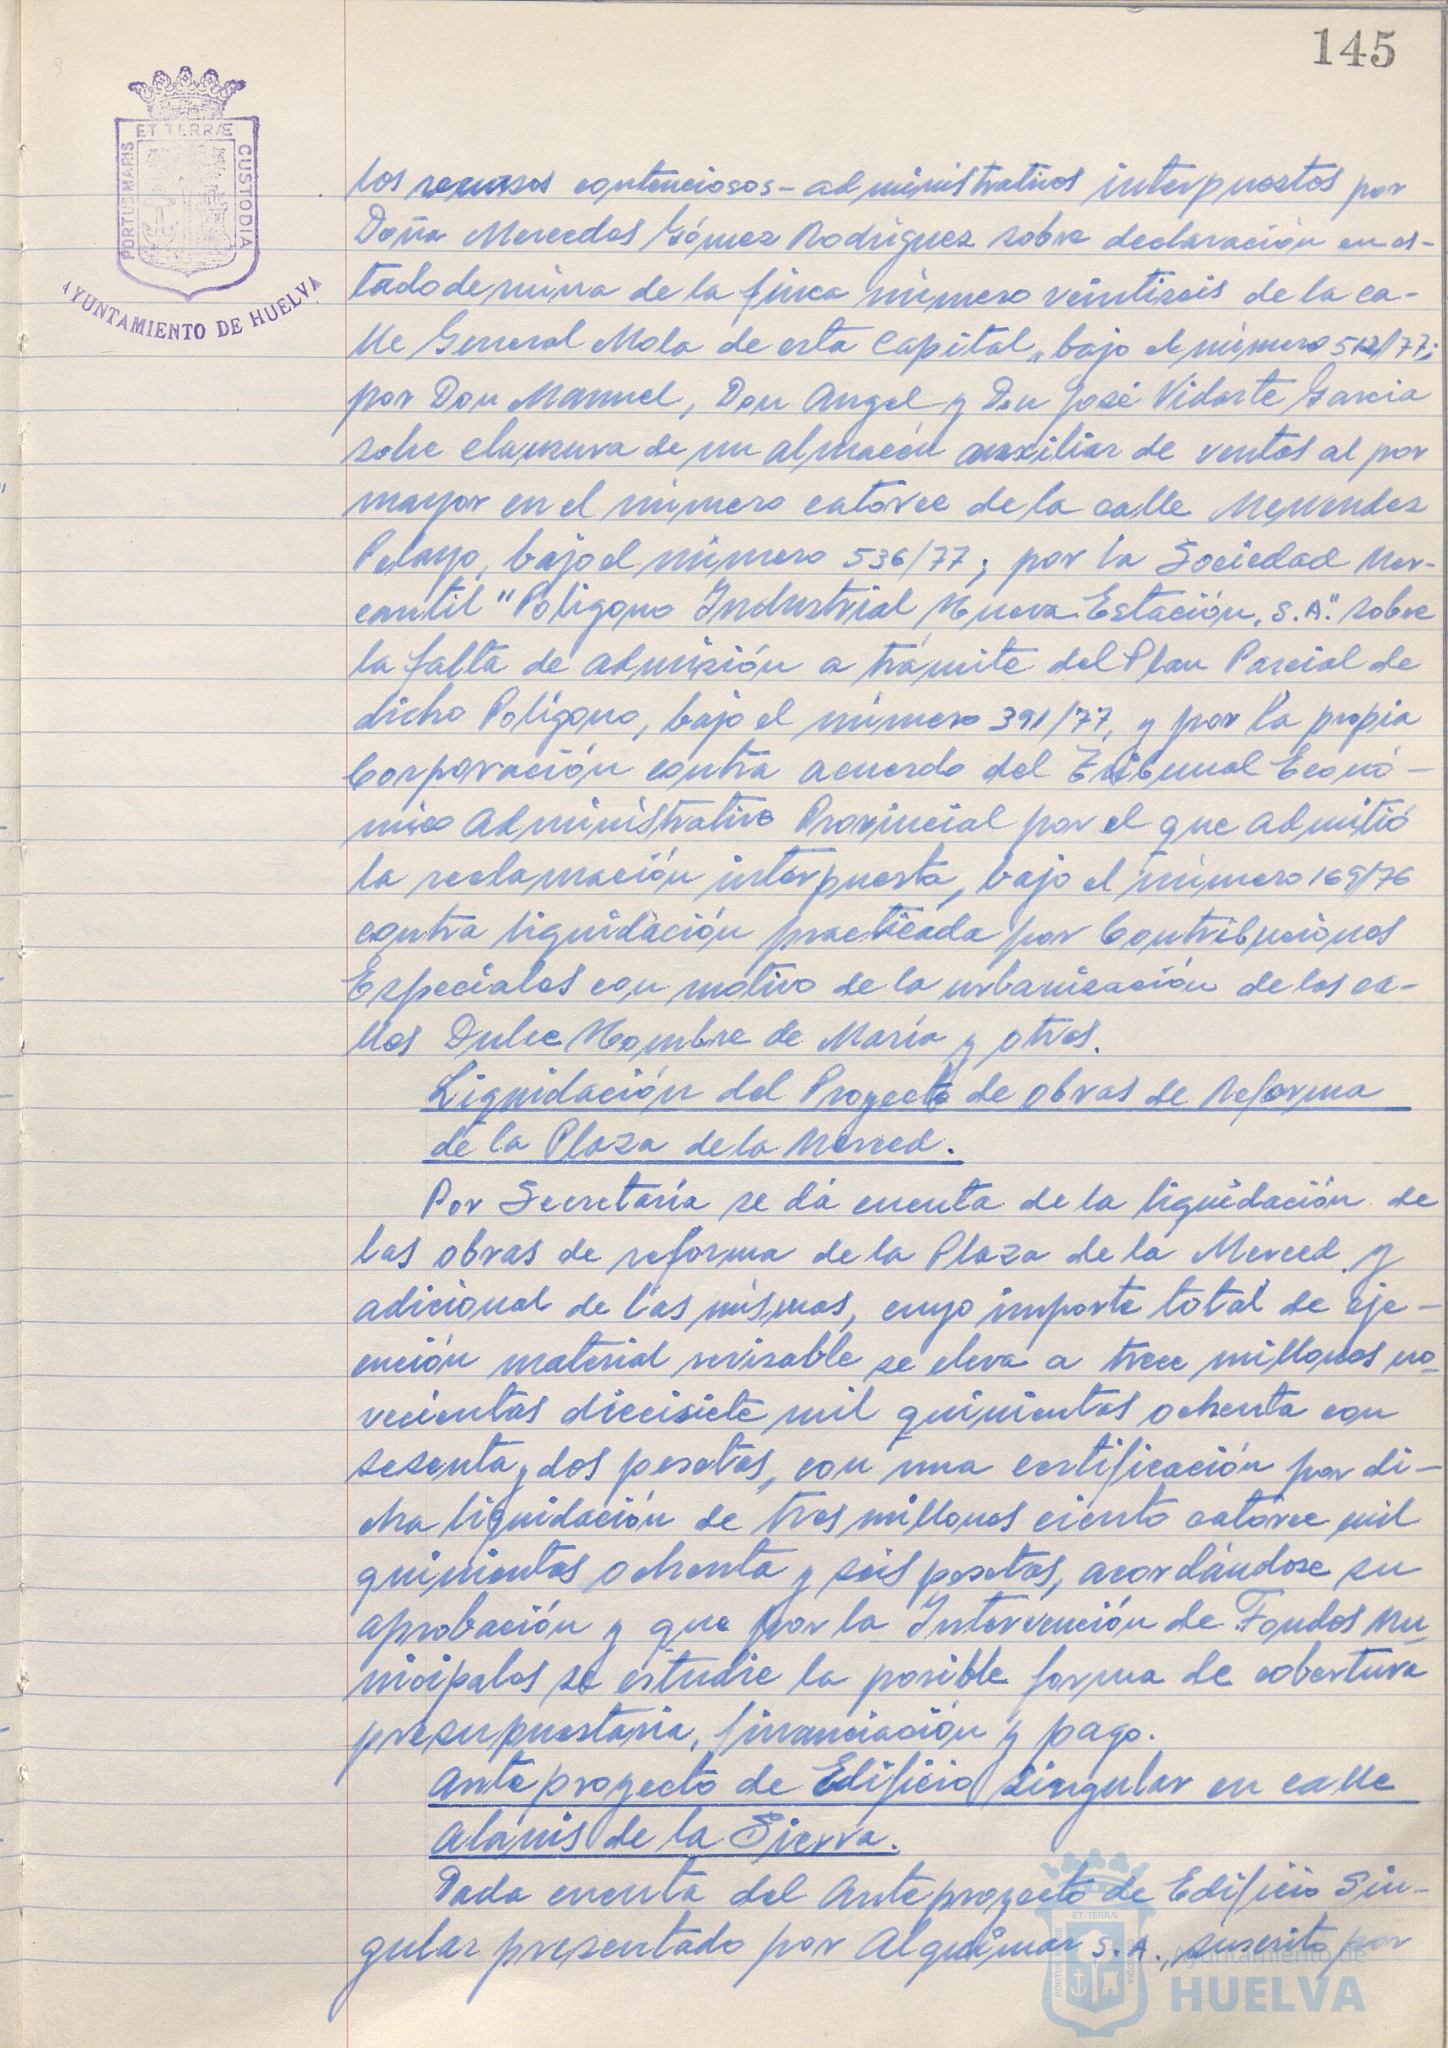 145
ET TERRÆ
PORTUS MARIS
CUSTODIA
AYUNTAMIENTO DE HUELVA
los recursos contenciosos-administrativos interpuestos por
Doña Mercedes Gómez Rodríguez sobre declaración en es-
tado de ruina de la finca número veintiseis de la ca-
lle General Mola de esta Capital, bajo el número 512/77;
por Don Manuel, Don Angel y Don José Vidarte Garcia
sobre clausura de un almacén auxiliar de ventas al por
mayor en el número catorce de la calle Menendez
Pelayo, bajo el número 536/77; por la Sociedad Mer-
cantil "Polígono Industrial Nueva Estación, S.A." sobre
la falta de admisión a trámite del Plan Parcial de
dicho Polígono, bajo el número 391/77, y por la propia
Corporación contra acuerdo del Tribunal Econó-
mico Administrativo Provincial por el que admitió
la reclamación interpuesta, bajo el número 169/76
contra liquidación practicada por Contribuciones
Especiales con motivo de la urbanización de las ca-
lles Dulce Nombre de María y otras.
Liquidación del Proyecto de obras de Reforma
de la Plaza de la Merced.
Por Secretaría se dá cuenta de la liquidación de
las obras de reforma de la Plaza de la Merced y
adicional de las mismas, cuyo importe total de eje-
cución material revisable se eleva a trece millones no-
vecientas diecisiete mil quinientas ochenta con
sesenta y dos pesetas, con una certificación por di-
cha liquidación de tres millones ciento catorce mil
quinientas ochenta y seis pesetas, acordándose su
aprobación y que por la Intervención de Fondos Mu-
nicipales se estudie la posible forma de cobertura
presupuestaria, financiación y pago.
Anteproyecto de Edificio Singular en calle
Alanis de la Sierra.
Dada cuenta del Anteproyecto de Edificio Sin-
gular presentado por Alquimar S.A., suscrito por
ET TERRÆ
Ayuntamiento de
HUELVA